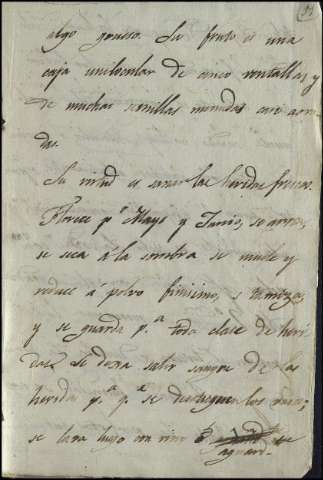 algo grueso. Su fruto es una
caja unilocular de cinco ventallas, y
de muchas semillas menudas casi aova
das.
Su virtud es sanar las heridas frescas.
Florece p.r Mayo y Junio, se arran,
se seca á la sombra se muele y
reduce á polvo finissimo, se tamiza,
y se guarda p.a toda clase de heri
das. Se dexa salir sangre de las
heridas p.a q.e se desaguen los vasos;
se lava luego con vino ó
aguard.te